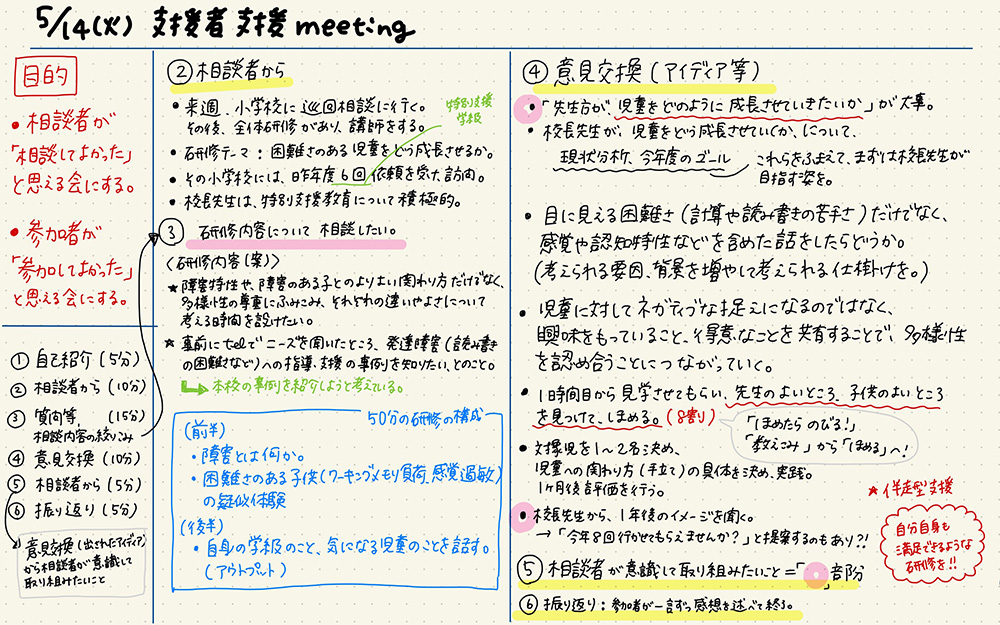 5/14(火) 支援者支援 meeting
目的
・相談者が
「相談してよかった」
と思える会にする。
・参加者が
「参加してよかった」
と思える会にする。
① 自己紹介(5分)
② 相談者から(10分)
③ 質問等、(15分)
相談内容の絞りこみ
④ 意見交換(10分)
⑤ 相談者から(5分)
⑥ 振り返り(5分)
意見交換(出されたアイディア)
から相談者が意識して
取り組みたいこと
② 相談者から
・来週、小学校に巡回相談に行く。
その後、全体研修があり、講師をする。
特別支援
学級
・研修テーマ:困難さのある児童をどう成長させるか。
・その小学校には、昨年度6回依頼を受け訪問。
・校長先生は、特別支援教育について積極的。
③ 研修内容について相談したい。
〈研修内容(案)〉
★障害特性や、障害のある子とのよりよい関わり方だけでなく、
多様性の尊重にふみこみ、それぞれの違いやよさについて
考える時間を設けたい。
★事前にtelでニーズを聞いたところ、発達障害(読み書き
の困難さなど)への指導、支援の事例を知りたい、とのこと。
→本校の事例を紹介しようと考えている。
50分の研修の構成
(前半)
・障害とは何か。
・困難さのある子供(ワーキングメモリ負荷、感覚過敏)
の疑似体験
(後半)
・自身の学級のこと、気になる児童のことを話す。
(アウトプット)
④ 意見交換(アイディア等)
・「先生方が、児童をどのように成長させていきたいか」が大事。
・校長先生が、児童をどう成長させていくか、について、
現状分析、今年度のゴール これらをふまえて、まずは校長先生が
目指す姿を。
・目に見える困難さ(計算や読み書きの苦手さ)だけでなく、
感覚や認知特性などを含めた話をしたらどうか。
(考えられる要因、背景を増やして考えられる仕掛けを。)
・児童に対してネガティブな捉えになるのではなく、
興味をもっていること、得意なことを共有することで、多様性
を認め合うことにつながっていく。
・1時間目から見学させてもらい、先生のよいところ、子供のよいところ
を見つけて、ほめる。(8割)
「ほめたらのびる!」
「教えこみ」から「ほめる」へ!
・対象児を1~2名決め、
児童への関わり方(手立て)の具体を決め、実践。
1ヶ月後評価を行う。
・校長先生から、1年後のイメージを聞く。
→「今年8回行かせてもらえませんか?」と提案するのもあり?!
★伴走型支援
自分自身も
満足できるような
研修を!!
⑤ 相談者が意識して取り組みたいこと=「・」部分
⑥ 振り返り:参加者が一言ずつ感想を述べて終る。